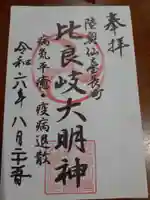 奉拝
陸奥仙臺長町
比良岐大明神
病気平癒 疫病退散
令和六年八月二十五日